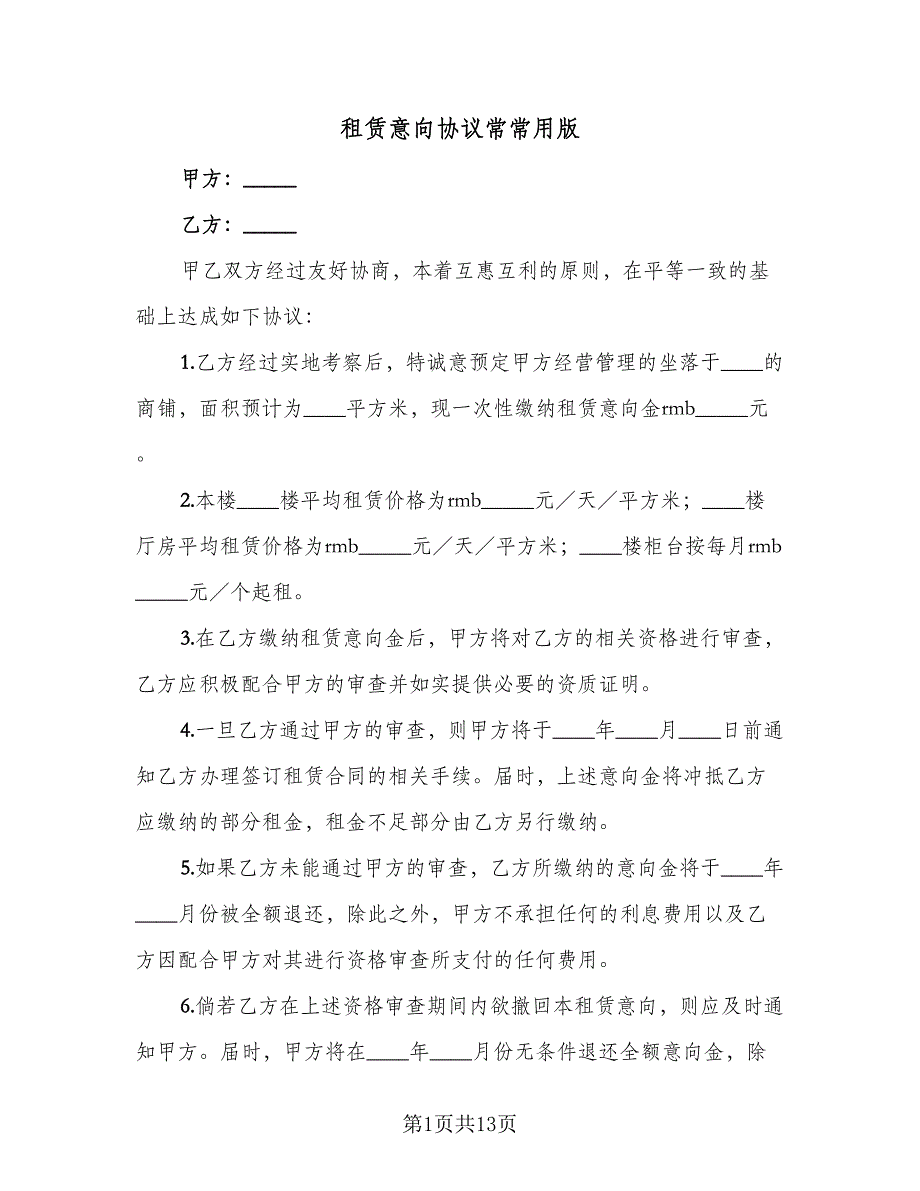 租赁意向协议常常用版
甲方：_____
乙方：_____
甲乙双方经过友好协商，本着互惠互利的原则，在平等一致的基
础上达成如下协议：
1.乙方经过实地考察后，特诚意预定甲方经营管理的坐落于____的
商铺，面积预计为____平方米，现一次性缴纳租赁意向金rmb_____元
。
2.本楼____楼平均租赁价格为rmb_____元／天／平方米；____楼
厅房平均租赁价格为rmb_____元／天／平方米；____楼柜台按每月rmb
_____元／个起租。
3.在乙方缴纳租赁意向金后，甲方将对乙方的相关资格进行审查，
乙方应积极配合甲方的审查并如实提供必要的资质证明。
4.一旦乙方通过甲方的审查，则甲方将于____年____月____日前通
知乙方办理签订租赁合同的相关手续。届时，上述意向金将冲抵乙方
应缴纳的部分租金，租金不足部分由乙方另行缴纳。
5.如果乙方未能通过甲方的审查，乙方所缴纳的意向金将于____年
____月份被全额退还，除此之外，甲方不承担任何的利息费用以及乙
方因配合甲方对其进行资格审查所支付的任何费用。
6.倘若乙方在上述资格审查期间内欲撤回本租赁意向，则应及时通
知甲方。届时，甲方将在____年____月份无条件退还全额意向金，除
第1页共13页